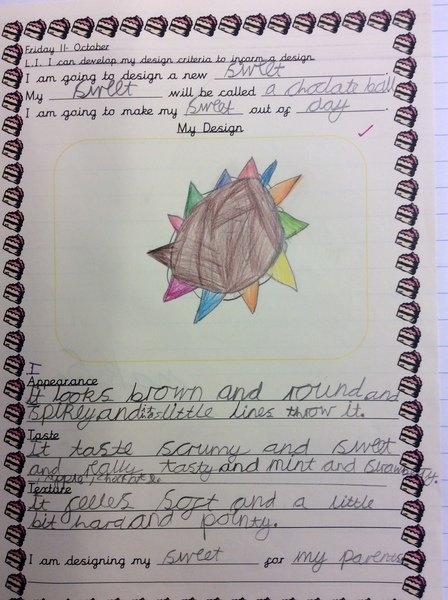 Friday 11th October
L.I. I can develop my design criteria to inform a design
I am going to design a new sweet
My sweet will be called a choclate ball
I am going to make my sweet out of day.
My Design
I
Appearance
It looks brown and round and
spikey and its little lines throw it.
Taste
It taste scrumy and sweet
and really tasty and mint and strawberry.
Texture
It feeles soft and a little
bit hard and pointy.
I am designing my sweet for my parents